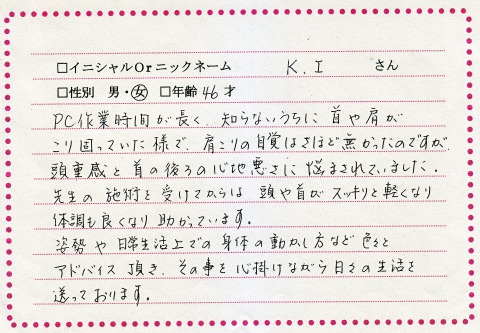 □イニシャルOrニックネーム K.I さん
□性別 男・女 □年齢 46才
PC作業時間が長く、知らないうちに首や肩が
こり固っていた様で、肩こりの自覚はさほど無かったのですが
頭重感と首の後ろの心地悪さに悩まされていました。
先生の施術を受けてからは 頭や首がスッキリと軽くなり
体調も良くなり助かっています。
姿勢や日常生活上での身体の動かし方など色々と
アドバイス頂き、その事を心掛けながら日々の生活を
送っております。